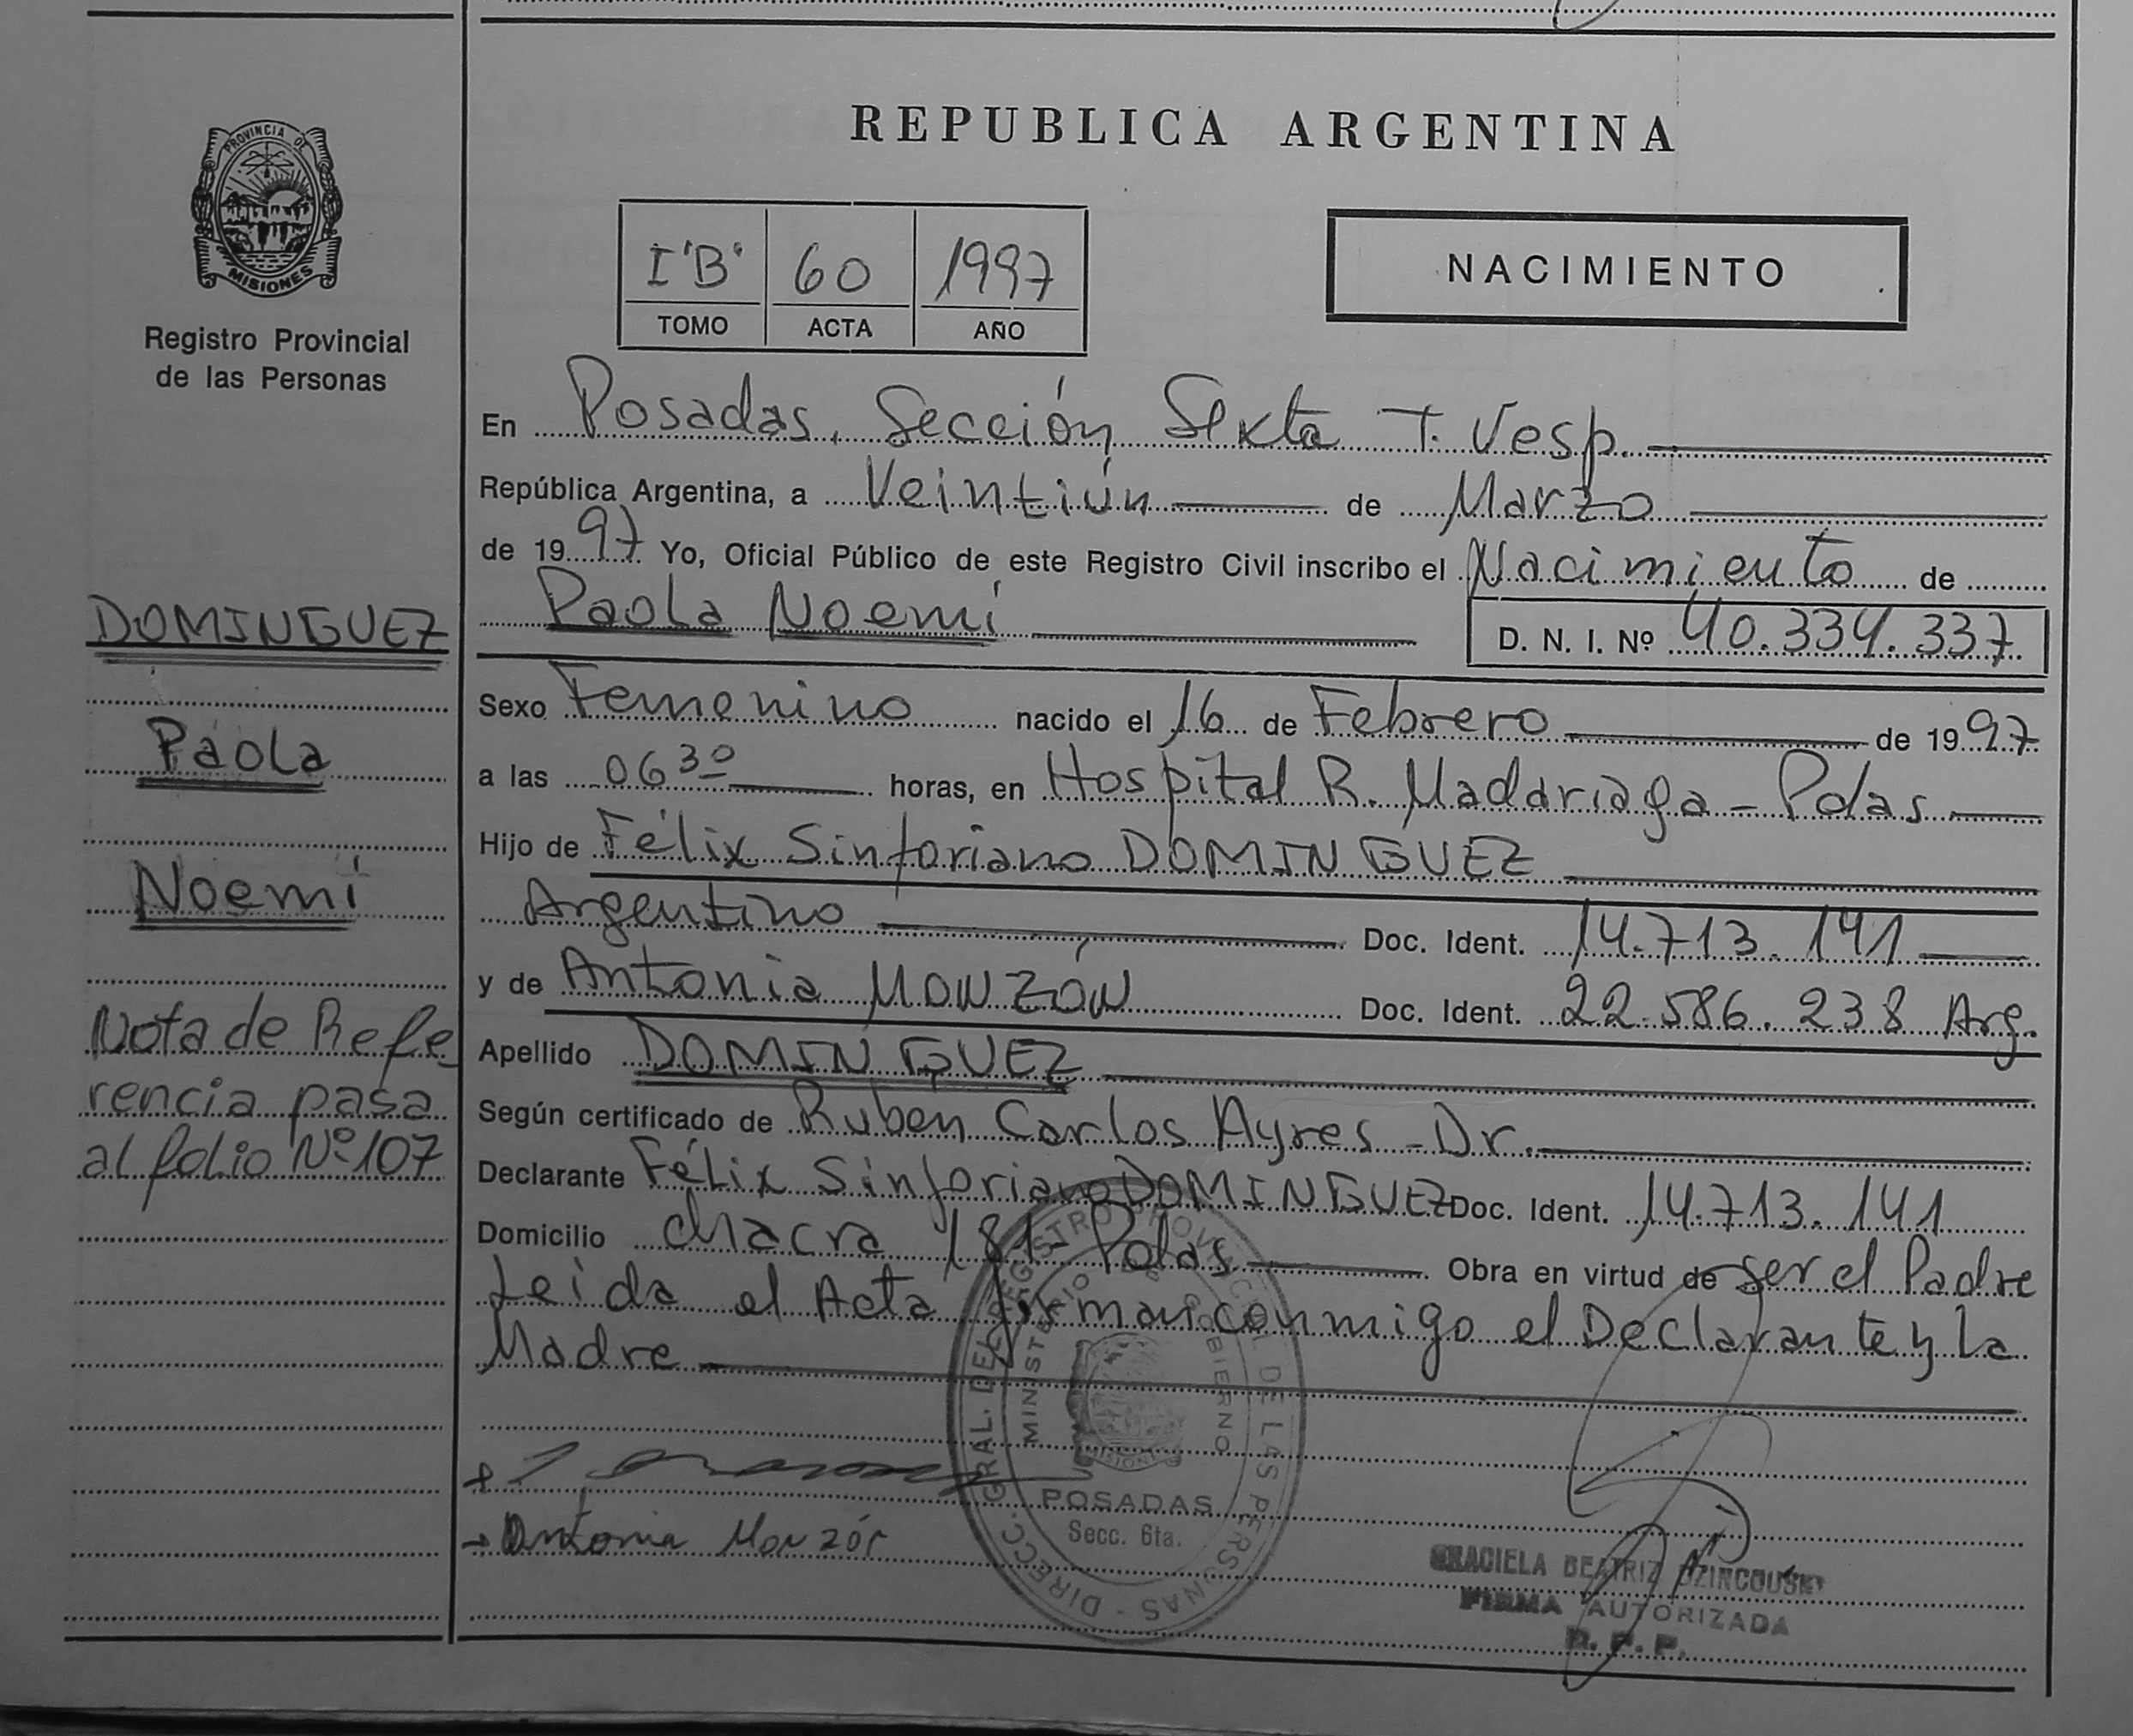 REPUBLICA ARGENTINA
PROVINCIA DE
MISIONES
Registro Provincial
de las Personas
I "B" 60 1997
TOMO ACTA AÑO
NACIMIENTO
En Posadas, Sección Sexta T. Vesp.
República Argentina, a Veintiún de Marzo
de 1997 Yo, Oficial Público de este Registro Civil inscribo el Nacimiento de
Paola Noemí D. N. I. Nº 40.334.337
DOMINGUEZ
Paola
Noemí
Nota de Refe
rencia pasa
al folio Nº 107
Sexo Femenino nacido el 16 de Febrero de 1997
a las 0630 horas, en Hospital R. Madariaga - Pdas
Hijo de Félix Sinforiano DOMINGUEZ
Argentino Doc. Ident. 14.713.141
y de Antonia MONZÓN Doc. Ident. 22.586.238 Arg.
Apellido DOMINGUEZ
Según certificado de Ruben Carlos Ayres - Dr.
Declarante Félix Sinforiano DOMINGUEZ Doc. Ident. 14.713.141
Domicilio chacra 181- Pdas Obra en virtud de ser el Padre
Leida el Acta firman conmigo el Declarante y la
Madre
Antonia Monzón
DIRECC. GRAL. DEL REGISTRO PROVINCIAL DE LAS PERSONAS
MINISTERIO DE GOBIERNO
MISIONES
POSADAS
Secc. 6ta.
GRACIELA BEATRIZ
FIRMA AUTORIZADA
R. P. P.